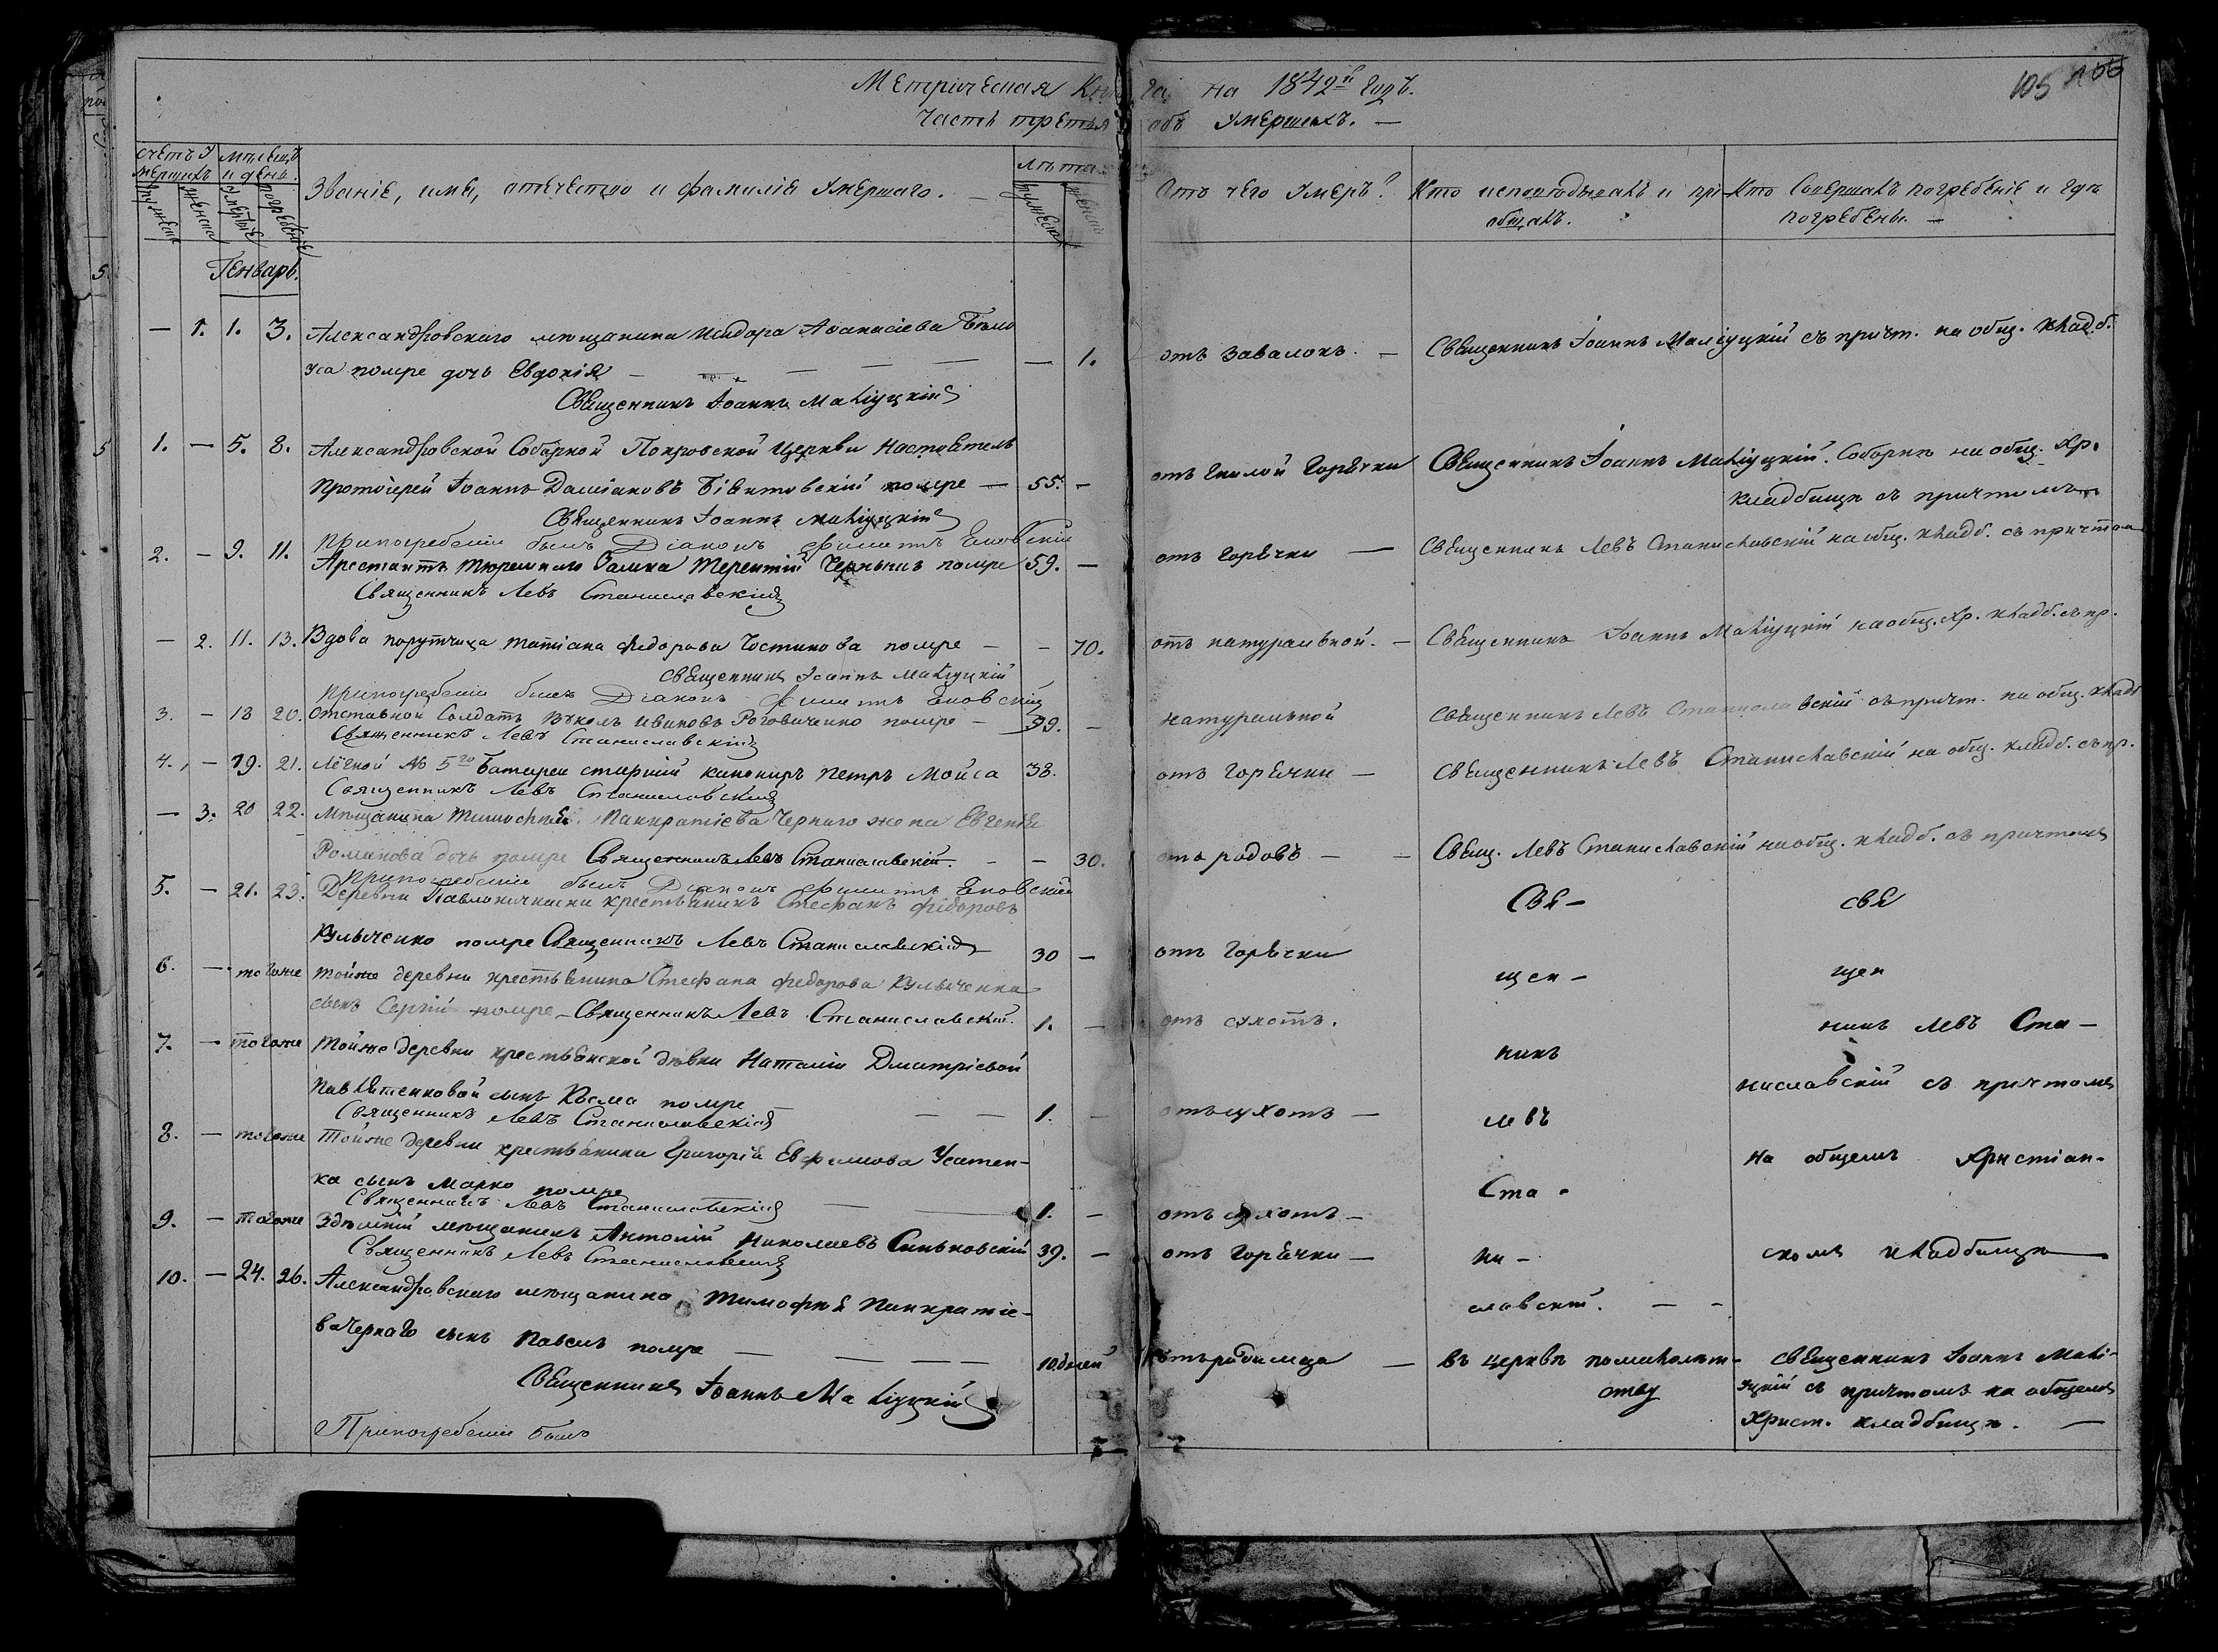 105 166
Метрическая Книга на 1842й годъ.
Часть третья объ умершихъ. —
счетъ умершихъ
мужеска
женска
мѣсяцъ и день.
смерти
погребенія
Званіе, имя, отечество и фамилія умершаго. —
лѣта
мужеска
женска
Отъ чего умеръ?
Кто исповѣдывалъ и пріобщалъ.
Кто совершалъ погребеніе и гдѣ погребены. —
Генварь.
— 1. 1. 3. Александровскаго мѣщанина Исидора Аѳанасіева Бѣло
уса помре дочь Евдокія — — — 1. отъ завалокъ. — Священникъ Іоаннъ Маліуцкій съ причт. на общ. кладб.
Священникъ Іоаннъ Маліуцкій
1. — 5. 8. Александровской Соборной Покровской Церкви Настоятель
Протоіерей Іоаннъ Даміановъ помре — 55. — отъ гнилой горячки Священникъ Іоаннъ Маліуцкій. Соборнѣ на общ. Хр.
кладбищѣ съ причтомъ
Священникъ Іоаннъ Маліуцкій
Припогребеніи былъ Діаконъ Филиппъ
2. — 9. 11. Арестантъ тюремнаго Замка Терентій помре 59. — отъ горячки — Священникъ Левъ Станиславскій на общ. кладб. съ причтом
Священникъ Левъ Станиславскій
— 2. 11. 13. Вдова порутчица Татіана Федорова Костинова помре — — 70. отъ натуральной. — Священникъ Іоаннъ Маліуцкій на общ. Хр. кладб. съ пр.
Священникъ Іоаннъ Маліуцкій
Припогребеніи былъ Діаконъ Филиппъ
3. — 18 20. Отставной Солдатъ Ивановъ Роговиченко помре — 39. — натуральной Священникъ Левъ Станиславскій съ причт. на общ. кладб
Священникъ Левъ Станиславскій
4. — 19. 21. Легкой № 5го Батареи старшій канониръ Петръ Мойса 38. отъ горячки — Священникъ Левъ Станиславскій на общ. кладб. съ пр.
Священникъ Левъ Станиславскій
— 3. 20 22. Мѣщанина Тимофея Панкратіева Чернаго жена Евгенія
Романова дочь помре Священникъ Левъ Станиславскій — — 30. отъ родовъ — — Свящ. Левъ Станиславскій на общ. кладб. съ причтомъ
Припогребеніи былъ Діаконъ Филиппъ
5. — 21. 23. Деревни крестьянинъ Стефанъ Федоровъ Свя — свя
Кульченко помре Священникъ Левъ Станиславскій 30 — отъ горячки
6. — тогоже тойже деревни крестьянина Стефана Федорова Кульченка щен — щен
сынъ Сергій помре — Священникъ Левъ Станиславскій. 1. — отъ сухотъ. никъ Левъ Ста —
7. — тогоже тойже деревни крестьянской дѣвки Наталіи Дмитріевой никъ
сынъ Косма помре — — — 1. — отъ сухотъ — Левъ ниславскій съ причтомъ
Священникъ Левъ Станиславскій
8. — тогоже тойже деревни крестьянина Григорія Евфимова Усатен-
ка сынъ Марко помре — 1. — отъ сухотъ — Ста — на общемъ Христіан-
Священникъ Левъ Станиславскій
9. — тогоже Здѣшній мѣщанинъ Антоній Николаевъ Синьковскій 39. — отъ горячки — ни — скомъ кладбищѣ —
Священникъ Левъ Станиславскій
10. — 24. 26. Александровскаго мѣщанина Тимофея Панкратіе- славскій. — —
ва Чернаго сынъ Павелъ помре — — — 10 дней отъ родимца — въ церквѣ по малолѣт- Священникъ Іоаннъ Малі-
ству уцкій съ причтомъ на общемъ
Христ. кладбищѣ. —
Священникъ Іоаннъ Маліуцкій
Припогребеніи былъ